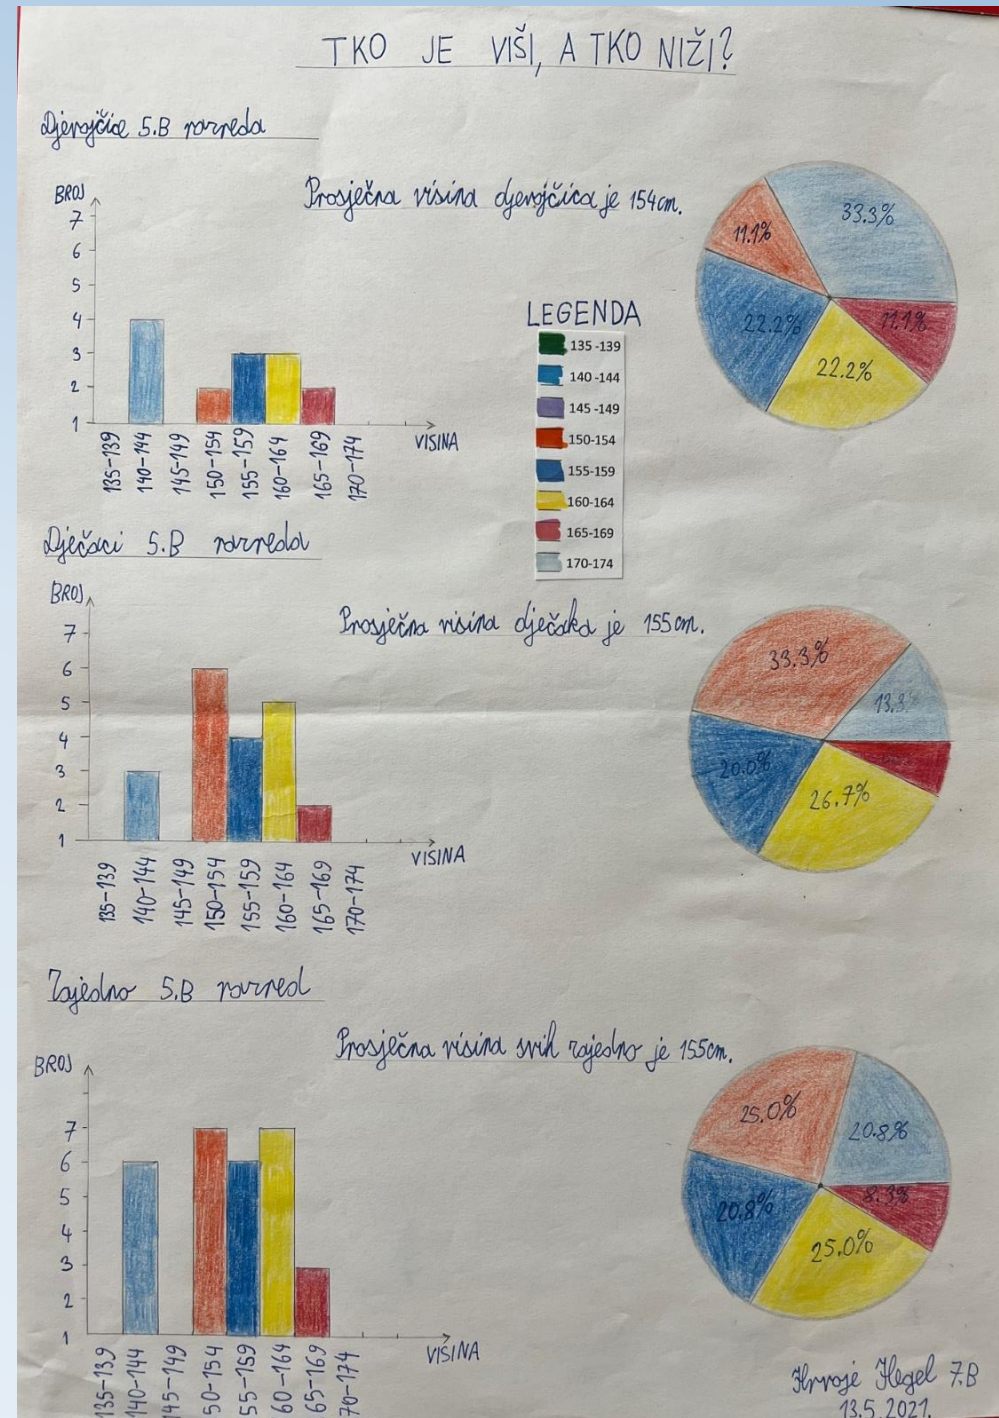 TKO JE VIŠI, A TKO NIŽI?
Djevojčice 5.B razreda
Prosječna visina djevojčica je 154cm.
BROJ
7
6
5
4
3
2
1
135-139
140-144
145-149
150-154
155-159
160-164
165-169
170-174
VISINA
33.3%
11.1%
22.2%
22.2%
11.1%
LEGENDA
135-139
140-144
145-149
150-154
155-159
160-164
165-169
170-174
Dječaci 5.B razreda
Prosječna visina dječaka je 155cm.
BROJ
7
6
5
4
3
2
1
135-139
140-144
145-149
150-154
155-159
160-164
165-169
170-174
VISINA
33.3%
13.3%
20.0%
26.7%
Zajedno 5.B razred
Prosječna visina svih zajedno je 155cm.
BROJ
7
6
5
4
3
2
1
135-139
140-144
145-149
50-154
55-159
60-164
65-169
70-174
VISINA
25.0%
20.8%
20.8%
8.3%
25.0%
Hrvoje Hegel 7.B
13.5.2021.